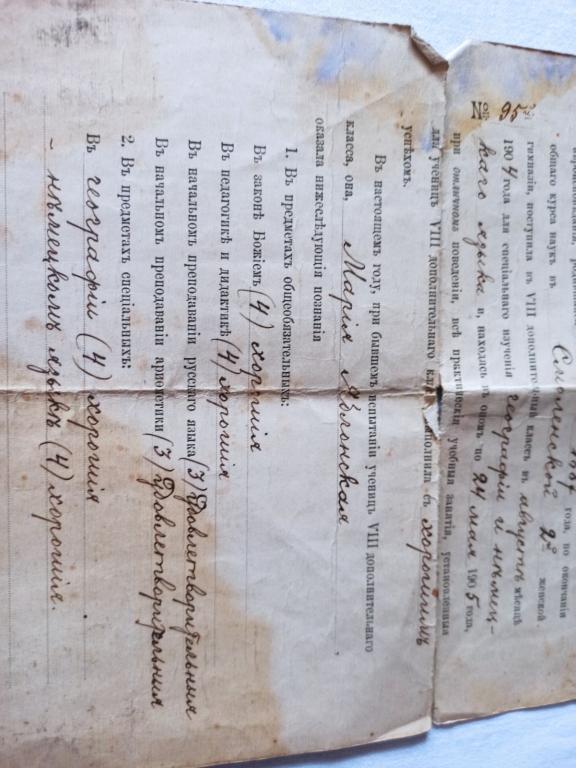 года, по окончаніи
общаго курса наукъ въ Смоленской 2й женской
гимназіи, поступила въ VIII дополнительный классъ въ августѣ мѣсяцѣ
1904 года для спеціальнаго изученія географіи и нѣмец-
№ 95
каго языка и, находясь въ ономъ по 24 мая 1905 года,
при отличномъ поведеніи, всѣ практическія учебныя занятія, установленныя
для ученицъ VIII дополнительнаго исполнила съ хорошимъ
успѣхомъ.
Въ настоящемъ году, при бывшемъ испытаніи ученицъ VIII дополнительнаго
класса, она, Марія Яблонская
оказала нижеслѣдующія познанія
1. Въ предметахъ общеобязательныхъ:
Въ законѣ Божіемъ (4) хорошія
Въ педагогикѣ и дидактикѣ (4) хорошія
Въ начальномъ преподаваніи русскаго языка (3) удовлетворительныя
Въ начальномъ преподаваніи ариѳметики (3) удовлетворительныя
2. Въ предметахъ спеціальныхъ:
Въ географіи (4) хорошія
- нѣмецкомъ языкѣ (4) хорошія.